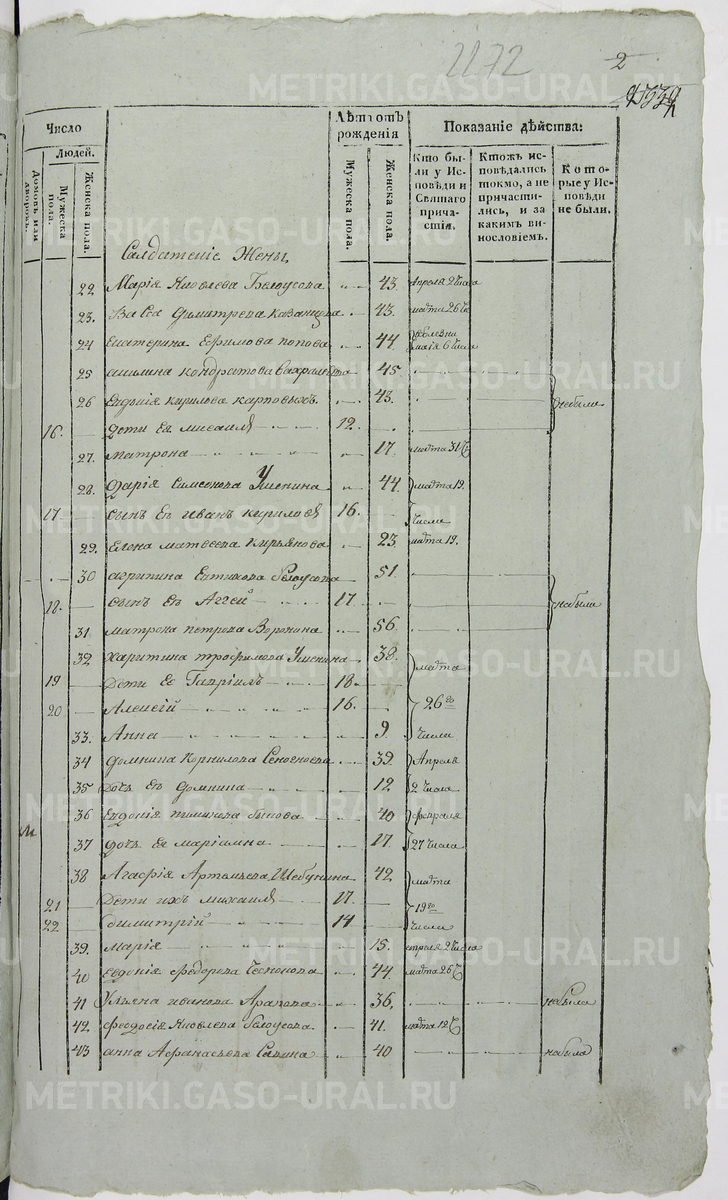 2172
2
Число
Людей.
Домовъ или дворовъ.
Мужеска пола.
Женска пола.
Лѣтъ отъ рожденія
Мужеска пола.
Женска пола.
Показаніе дѣйства:
Кто были у Исповѣди и Святаго причастія.
Ктожъ исповѣдались токмо, а не причастились, и за какимъ винословіемъ.
Которые у Исповѣди не были.
Салдатскіе Жены
22 Марія Яковлева Белоусова 43 Апреля 2 Числа
23. Васса Димитрева Казанцова 43. марта 26
24 Екатерина Ефимова попова 44 маія 6 Числа
25 Кондратова 45
26 Евдокія кирилова карповыхъ 43. небыли
16. Дети Ея михаилъ 12.
27. матрона 17. марта 31
28. Дарія Симеонова 44 марта 19.
17 Сынъ Ея иванъ кириловъ 16. Числа
29. Елена матвеева Кирьянова 23. марта 19.
30 агрипина Евтихова белоусова 51.
18. Сынъ Ея Аггей 17. небыли
31 матрона петрова Воронина 56
32 Харитина трофимова 38. марта
19 Дети Ея Гавріилъ 18.
20 Алексей 16. 26го
33. Анна 9 Числа
34 домнина Корнилова 39. Апреля
35 дочь Ея домнина 12 2 Числа
36 Евдокія быкова 40 февраля
37 дочь Ея Маріамна 17. 27 Числа
38 Агафія Артемьева Шебунина 42. марта
21 Дети ихъ михаилъ 17. 19го
22. димитрій 14 Числа
39. Марія 15. апреля 2 Числа
40 Евдокія Федорова Чеснокова 44. марта 26
41 Ульяна иванова Арапова 36. небыла
42. феодосія Яковлева белоусова 41. марта 19
43 анна Афанасьева Савина 40 небыла
METRIKI.GASO-URAL.RU